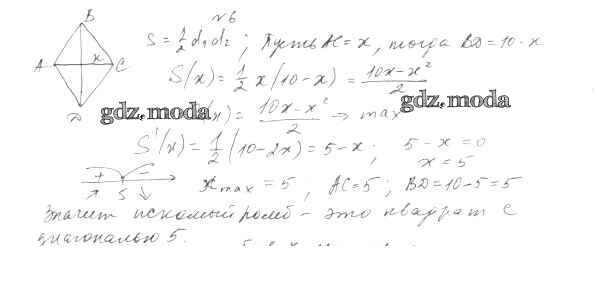 №6
B
S = 1/2 d₁d₂ ; Пусть AC = x, тогда BD = 10 - x
A x C
S(x) = 1/2 x(10-x) = (10x-x²)/2
D
gdz.moda (x) = (10x-x²)/2 → max gdz.moda
S'(x) = 1/2 (10-2x) = 5-x ; 5-x = 0
x = 5
+ -
5
x max = 5 , AC = 5 ; BD = 10-5 = 5
Значит искомый ромб - это квадрат с
диагональю 5.